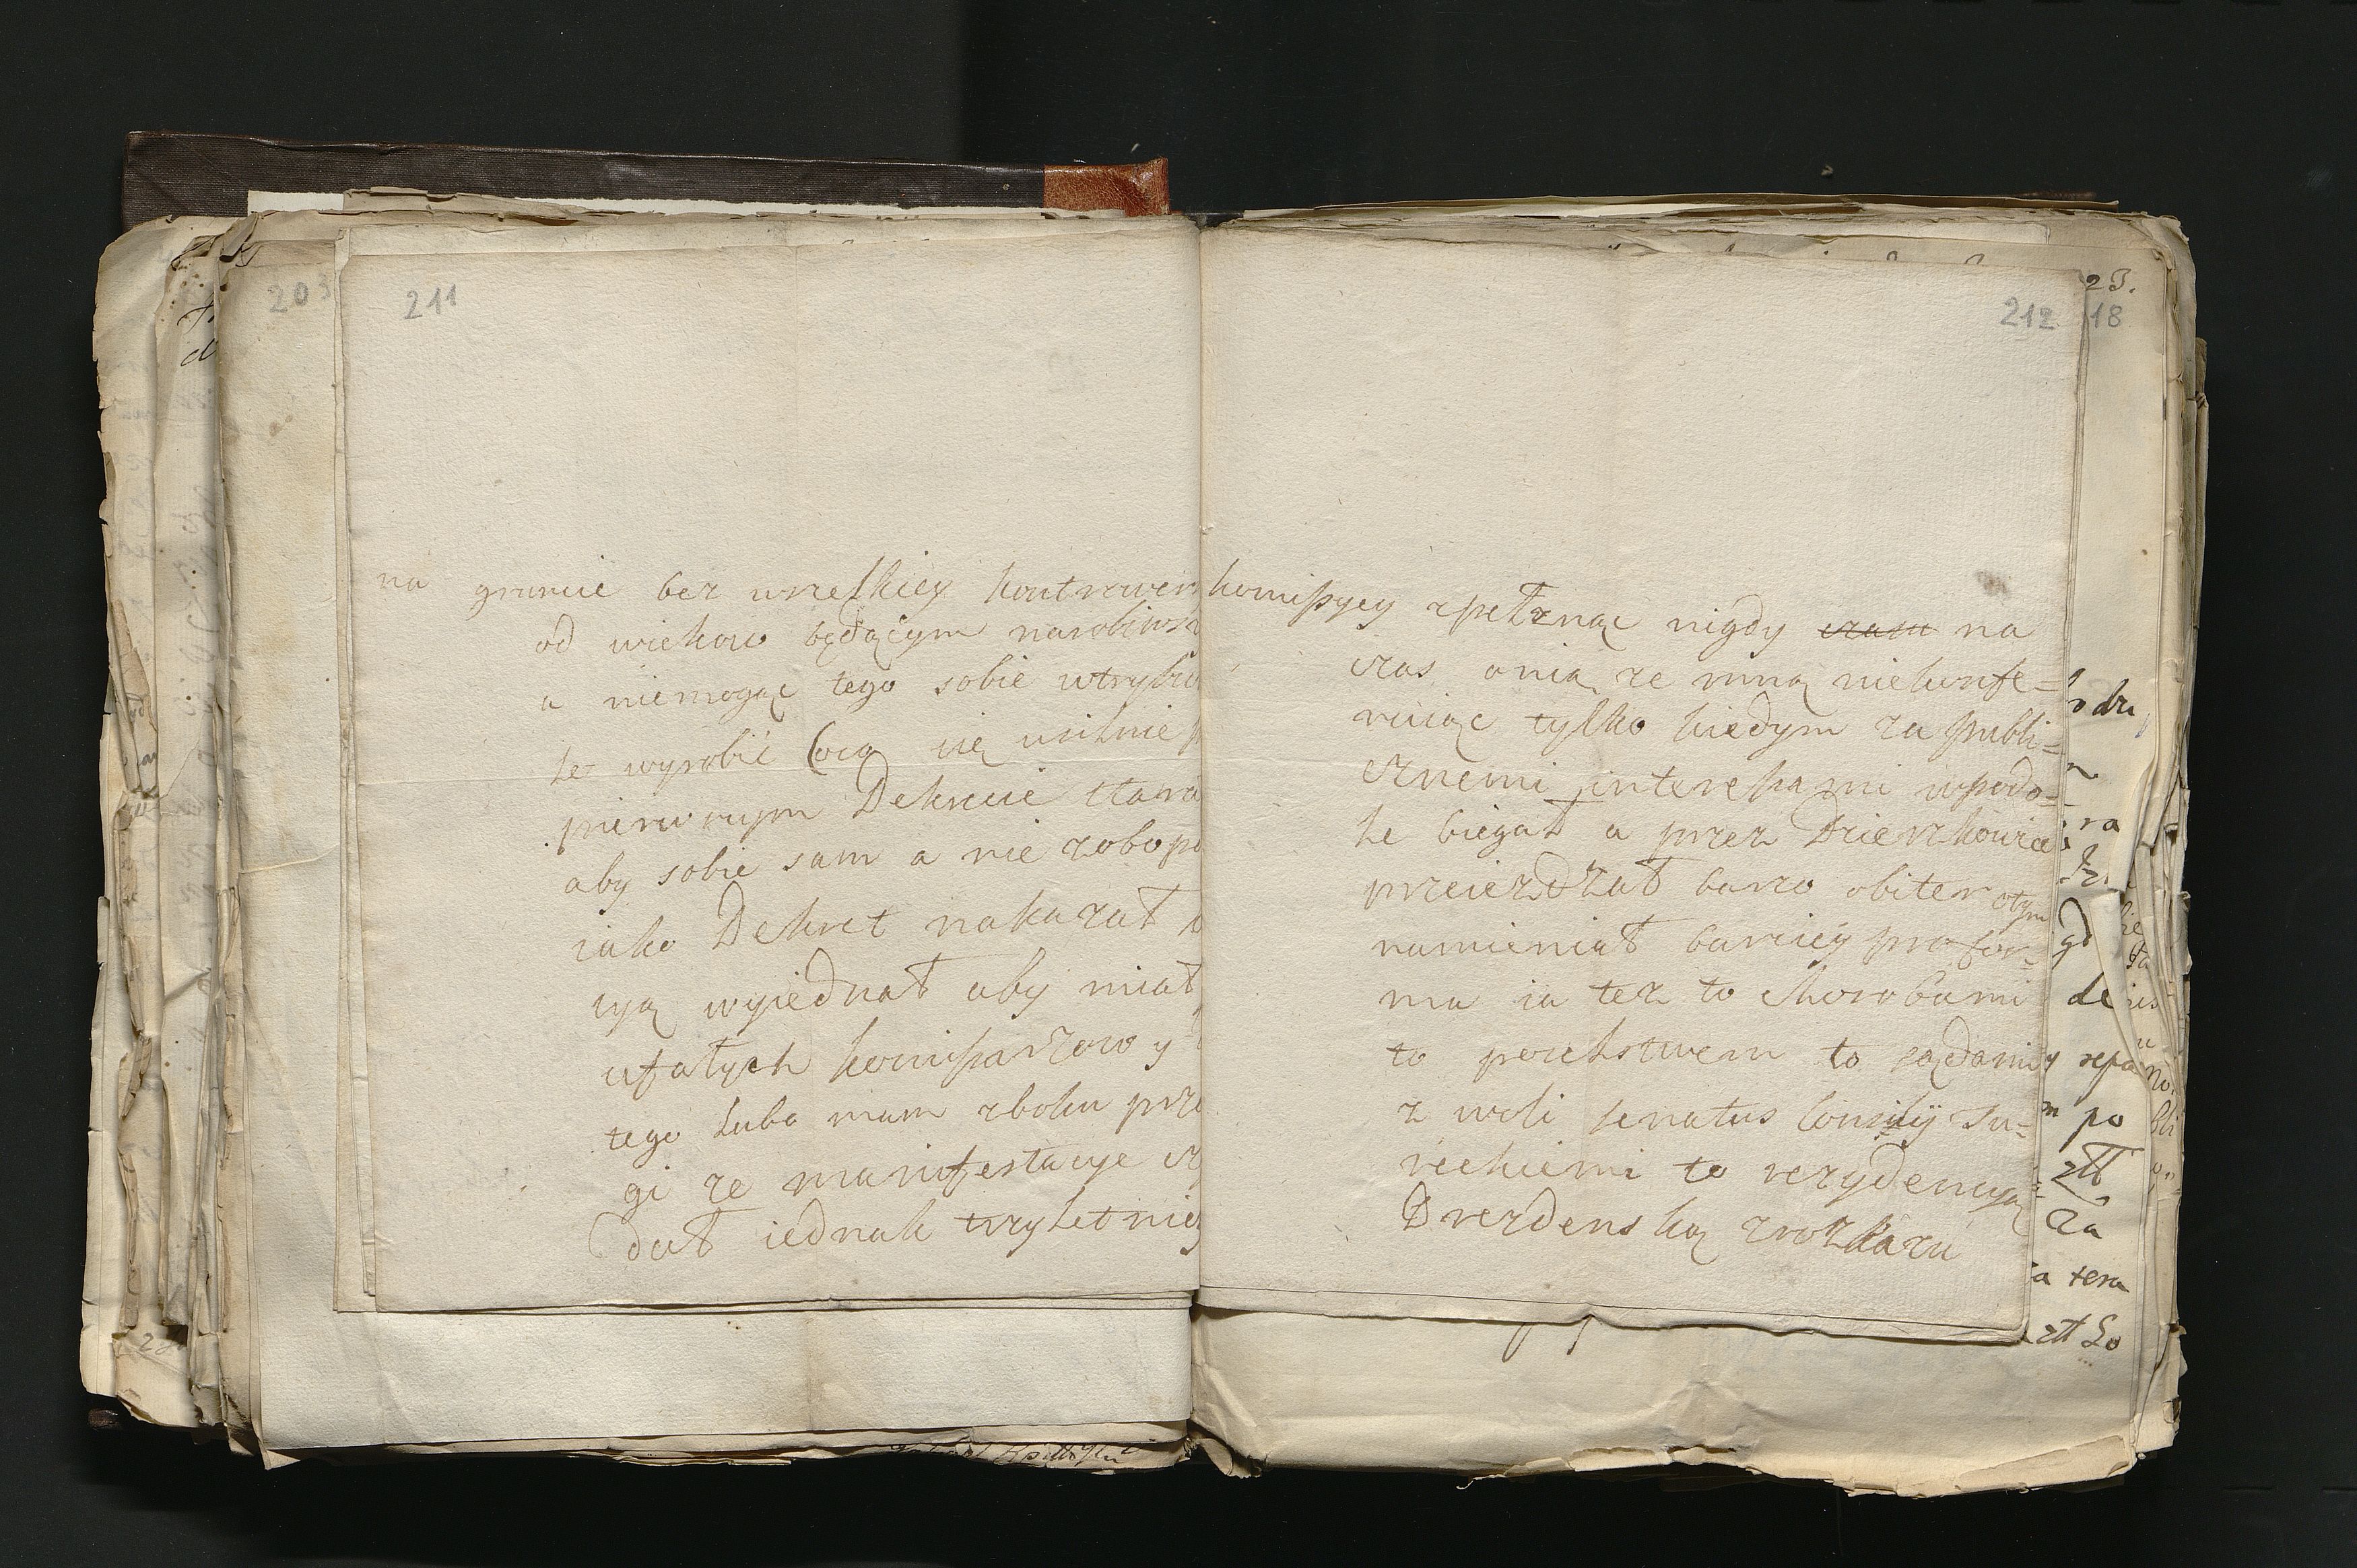 203
211
na gruncie bez wszelkiey kontrower
od wiekow będącym narobiwsz
a niemogąc tego sobie wtrybu
le wyrobić Cocą się usilnie
pierwszym Dekrecie stara
aby sobie sam a nie zobopo
iako Dekret nakazał
cyą wyiednał aby miał
ufałych komissarzow y
tego lubo mam zboku prze
gi ze manifestacye cz
dał iednak trzyletniey
212
komissyey zpełznąc nigdy czasu na
czas onią ze mną niekonfe=
ruiąc tylko kiedym za publi=
cznemi interessami wpodo=
le biegał a przez Dzierzkowice
przeiezdzał barzo obiter otym
namieniał barziey pro for=
ma ia tez to chorobami
to poselstwem to sądami
z woli senatus Consilij Tu=
reckiemi to rezydencyą
Drezdenską zrozkazu
23.
18
ra
gd
de
po
za
a tera